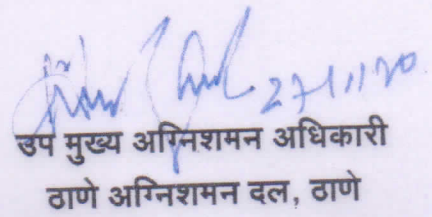 27/11/20
उप मुख्य अग्निशमन अधिकारी
ठाणे अग्निशमन दल, ठाणे